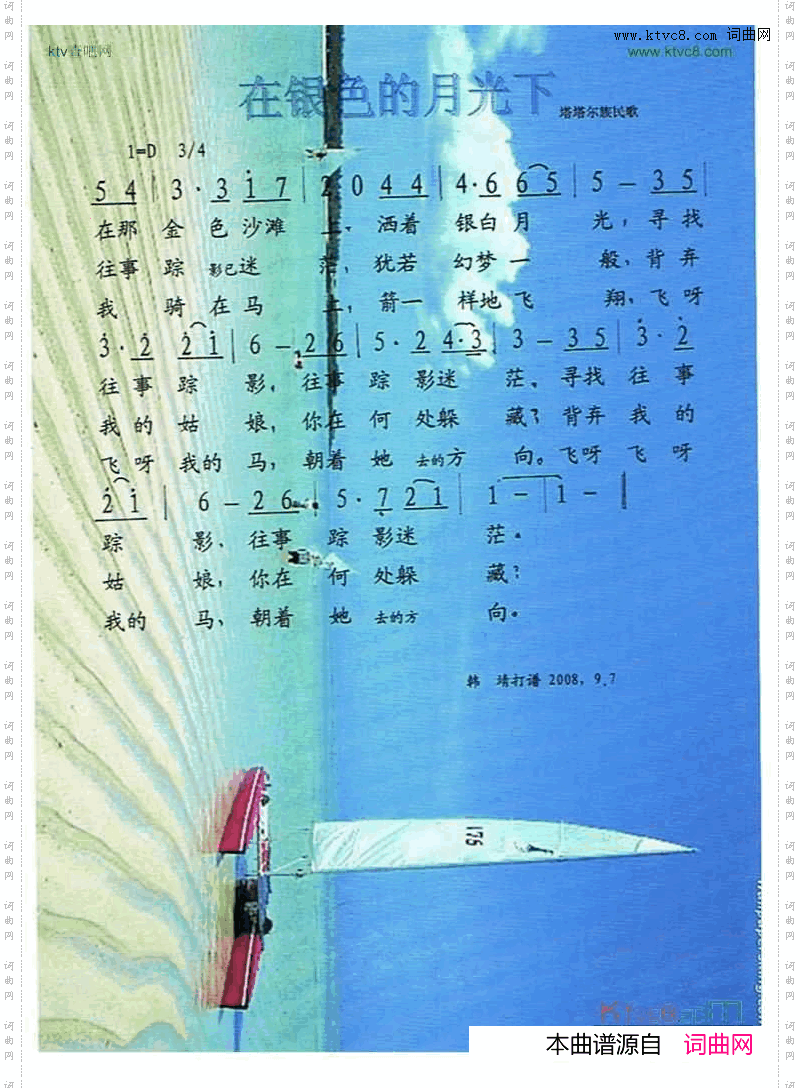 www.ktvc8.com 词曲网
ktv查吧网
www.ktvc8.com
在银色的月光下
塔塔尔族民歌
1=D 3/4
5 4 | 3· 3 i 7 | 2 0 4 4 | 4· 6 6 5 | 5 – 3 5 |
在那 金 色 沙滩 上，洒着 银白 月 光，寻 找
往事 踪 影已迷 茫，犹若 幻梦 一 般，背 弃
我 骑 在 马 上，箭一 样地 飞 翔，飞 呀
3· 2 2 i | 6 – 2 6 | 5· 2 4·3 | 3 – 3 5 | 3· 2
往 事 踪 影，往事 踪 影迷 茫。寻找 往 事
我 的 姑 娘，你在 何 处躲 藏？背弃 我 的
飞 呀 我的 马，朝着 她 去的方 向。飞呀 飞 呀
2 i | 6 – 2 6 | 5· 7 2 1 | 1 – | 1 – |
踪 影、往事 踪 影迷 茫。
姑 娘，你在 何 处躲 藏？
我的 马、朝着 她 去的方 向。
韩 靖打谱 2008，9.7
175
本曲谱源自 词曲网